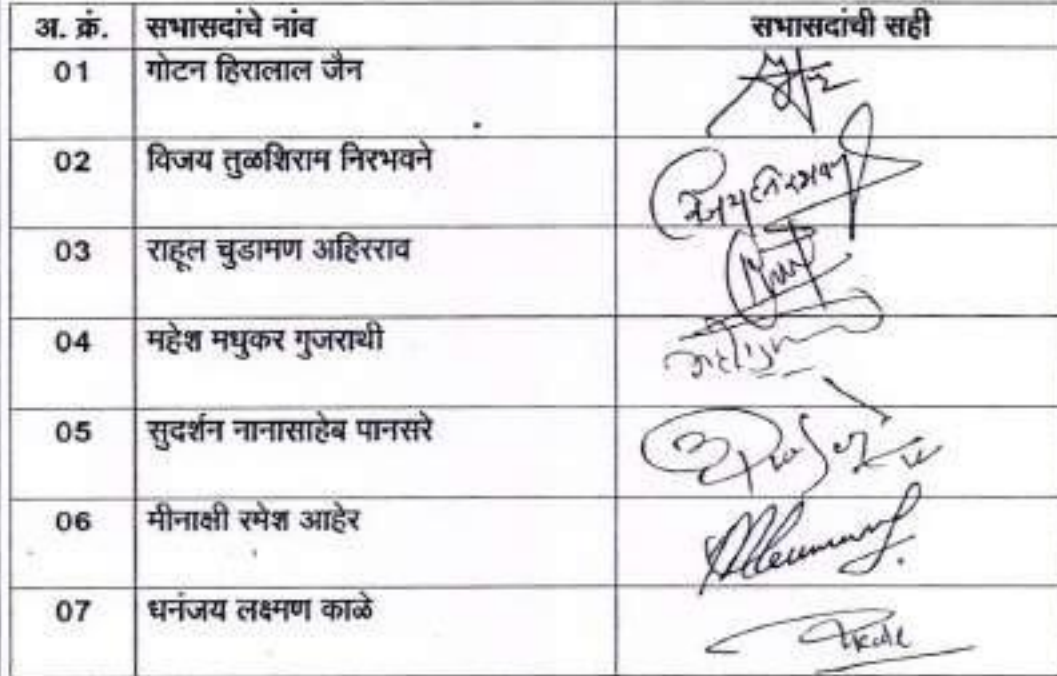 अ. क्रं. सभासदांचे नांव सभासदांची सही
01 गोटन हिरालाल जैन
02 विजय तुळशिराम निरभवने
03 राहूल चुडामण अहिरराव
04 महेश मधुकर गुजराथी
05 सुदर्शन नानासाहेब पानसरे
06 मीनाक्षी रमेश आहेर
07 धनंजय लक्ष्मण काळे